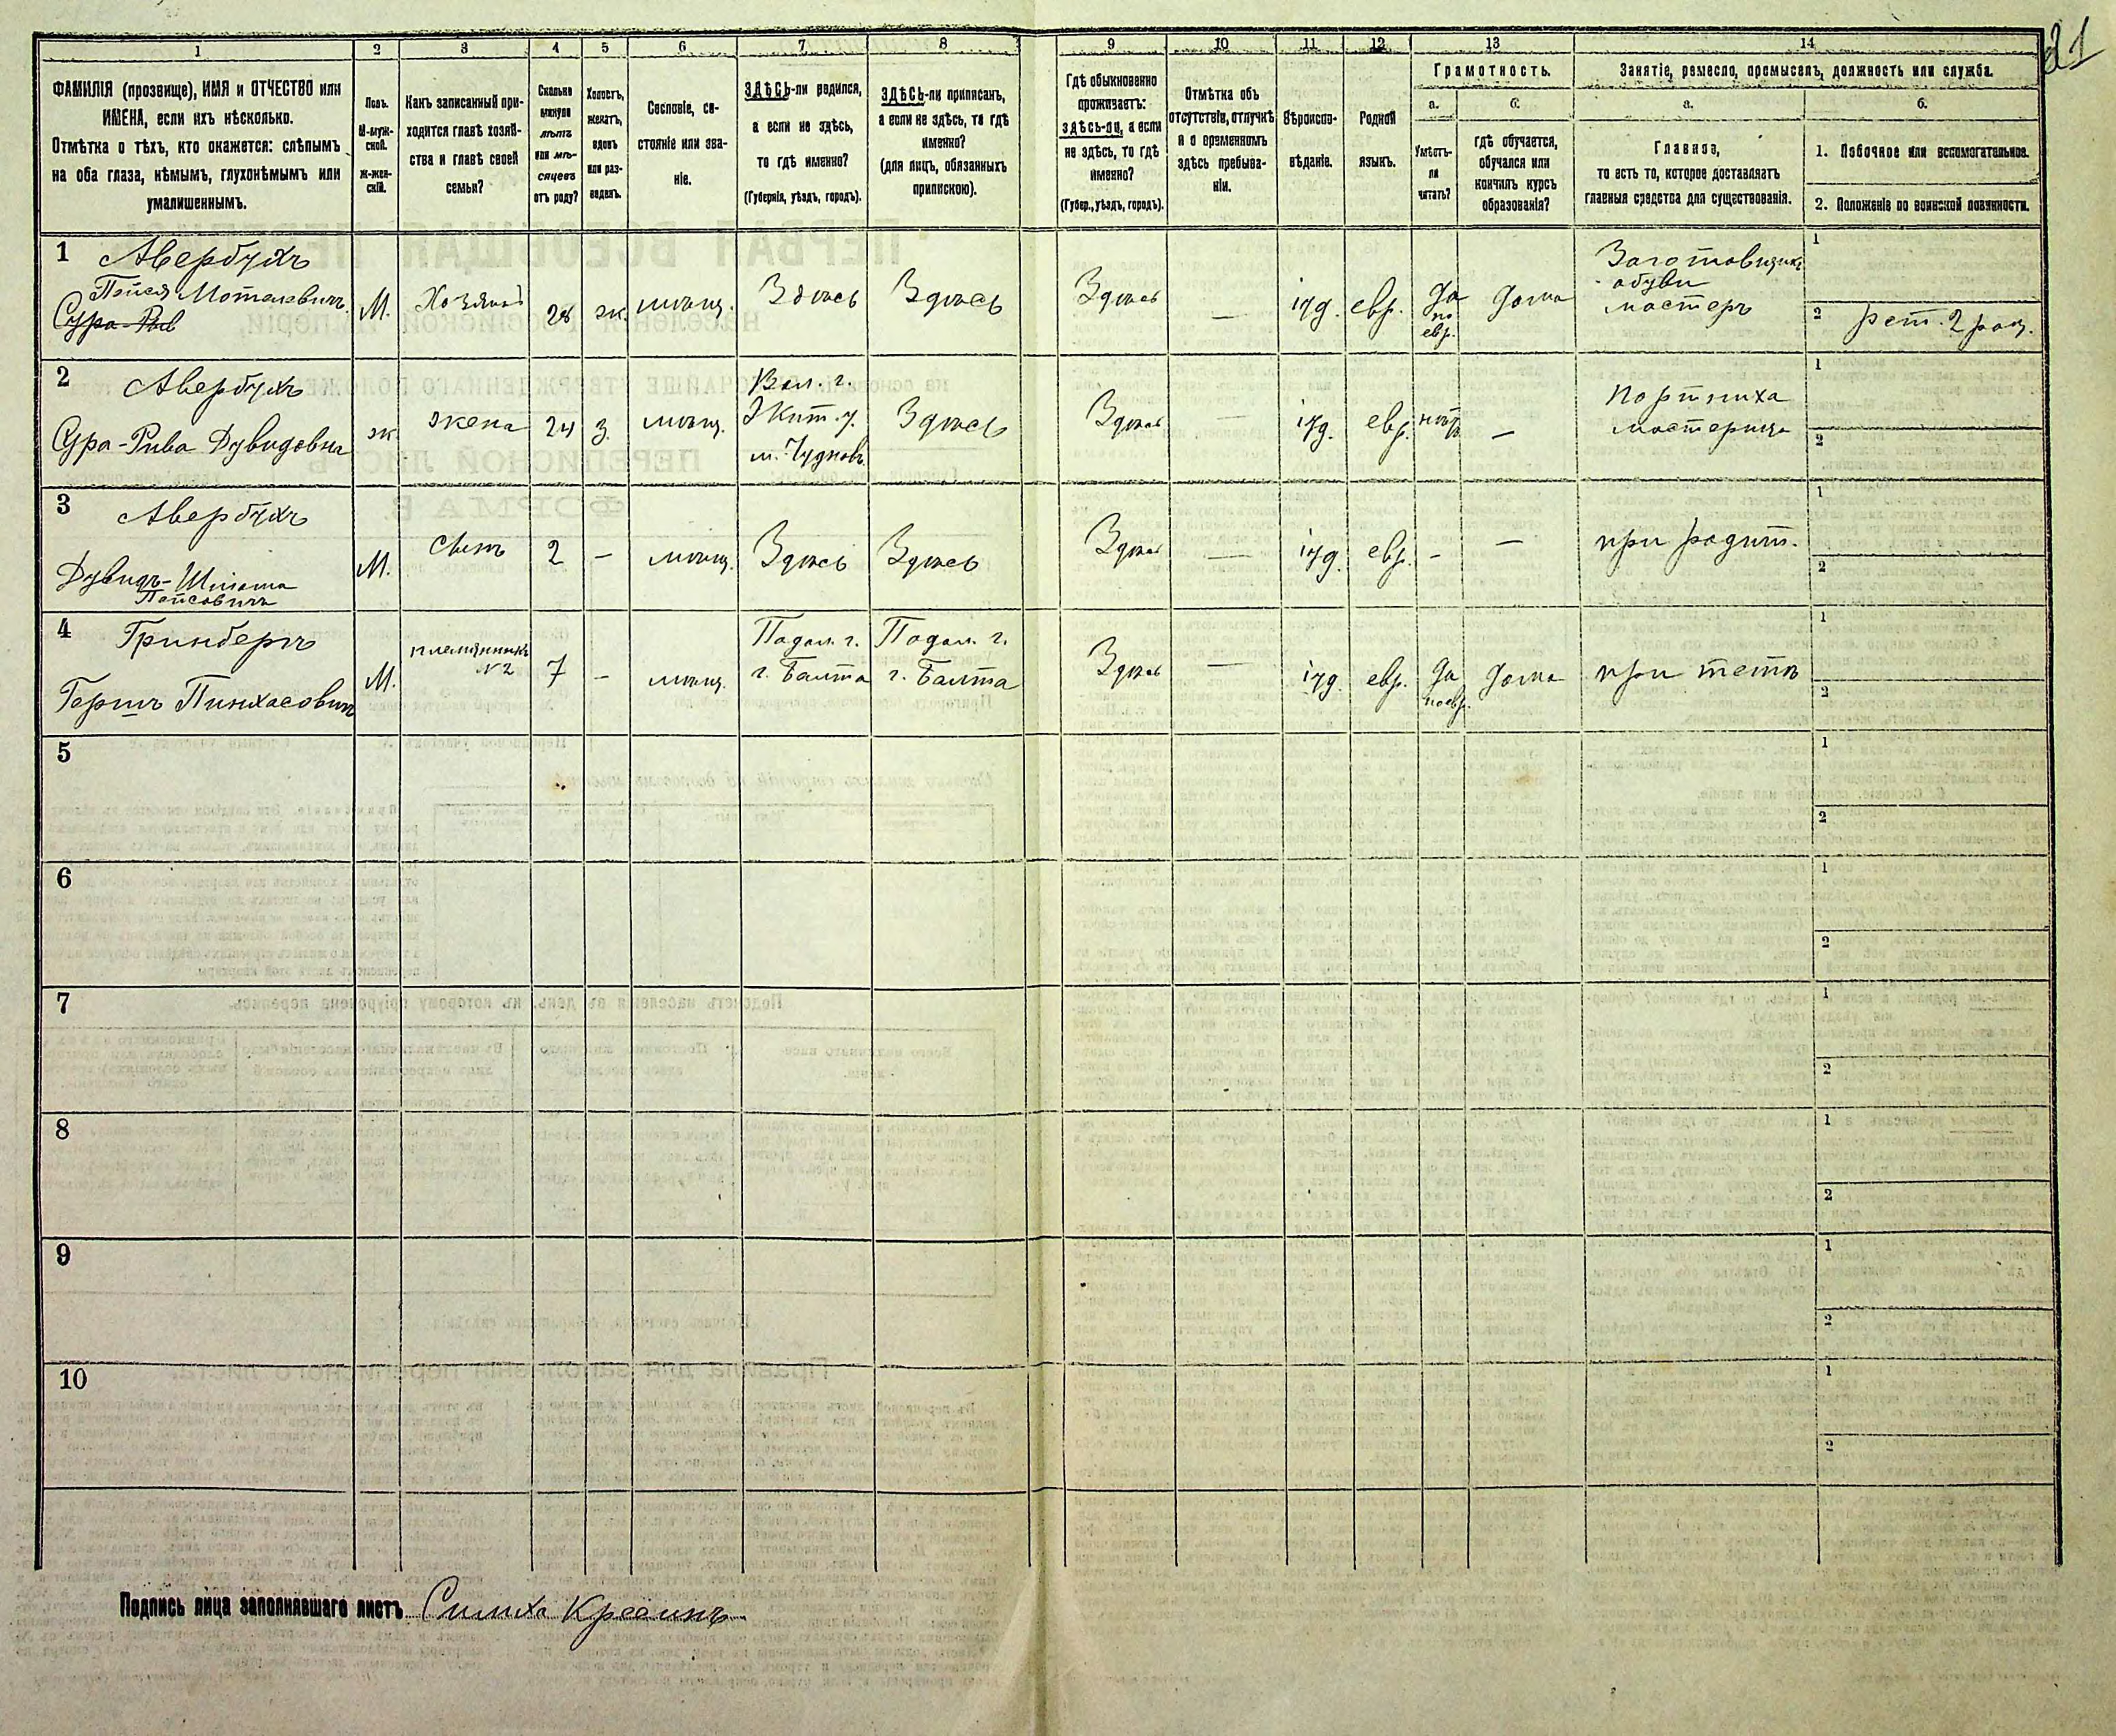 21
1 2 3 4 5 6 7 8 9 10 11 12 13 14
ФАМИЛІЯ (прозвище), ИМЯ и ОТЧЕСТВО или
ИМЕНА, если ихъ нѣсколько.
Отмѣтка о тѣхъ, кто окажется: слѣпымъ
на оба глаза, нѣмымъ, глухонѣмымъ или
умалишеннымъ.
Полъ.
М-муж-
ской.
Ж-жен-
скій.
Какъ записанный при-
ходится главѣ хозяй-
ства и главѣ своей
семьи?
Сколько
минуло
лѣтъ
или мѣ-
сяцевъ
отъ роду?
Холостъ,
женатъ,
вдовъ
или раз-
веденъ.
Сословіе, со-
стояніе или зва-
ніе.
ЗДѢСЬ-ли родился,
а если не здѣсь,
то гдѣ именно?
(Губернія, уѣздъ, городъ).
ЗДѢСЬ-ли приписанъ,
а если не здѣсь, то гдѣ
именно?
(для лицъ, обязанныхъ
припискою).
Гдѣ обыкновенно
проживаетъ:
здѣсь-ли, а если
не здѣсь, то гдѣ
именно?
(Губер., уѣздъ, городъ).
Отмѣтка объ
отсутствіи, отлучкѣ
и о временномъ
здѣсь пребыва-
ніи.
Вѣроиспо-
вѣданіе.
Родной
языкъ.
Грамотность.
а.
Умѣетъ-
ли
читать?
б.
гдѣ обучается,
обучался или
кончилъ курсъ
образованія?
Занятіе, ремесло, промыселъ, должность или служба.
а.
Главное,
то есть то, которое доставляетъ
главныя средства для существованія.
б.
1. Побочное или вспомогательное.
2. Положеніе по воинской повинности.
1
Авербухъ
Пейся Мотелевичъ
Сура-Рив
М.
Хозяинъ
28
ж.
мѣщ.
Здѣсь
Здѣсь
Здѣсь
—
іуд.
евр.
да
по
евр.
дома
Заготовщикъ
обуви
мастеръ
1
2 рат. 2 раз.
2
Авербухъ
Сура-Рива Дувидовна
ж.
жена
24
з.
мѣщ.
Вол. г.
Жит. у.
м. Чудновъ
Здѣсь
Здѣсь
—
іуд.
евр.
нѣтъ
—
Портниха
мастерица
1
2
3
Авербухъ
Дувидъ-Шлёма
Пейсовичъ
М.
сынъ
2
—
мѣщ.
Здѣсь
Здѣсь
Здѣсь
—
іуд.
евр.
-
—
при родит.
1
2
4
Гринбергъ
Гершъ Пинхасовичъ
М.
племянникъ
№2
7
—
мѣщ.
Подол. г.
г. Балта
Подол. г.
г. Балта
Здѣсь
—
іуд.
евр.
да
по евр.
дома
при тетѣ
1
2
5
1
2
6
1
2
7
1
2
8
1
2
9
1
2
10
1
2
Подпись лица заполнявшаго листъ Симха Крессинъ